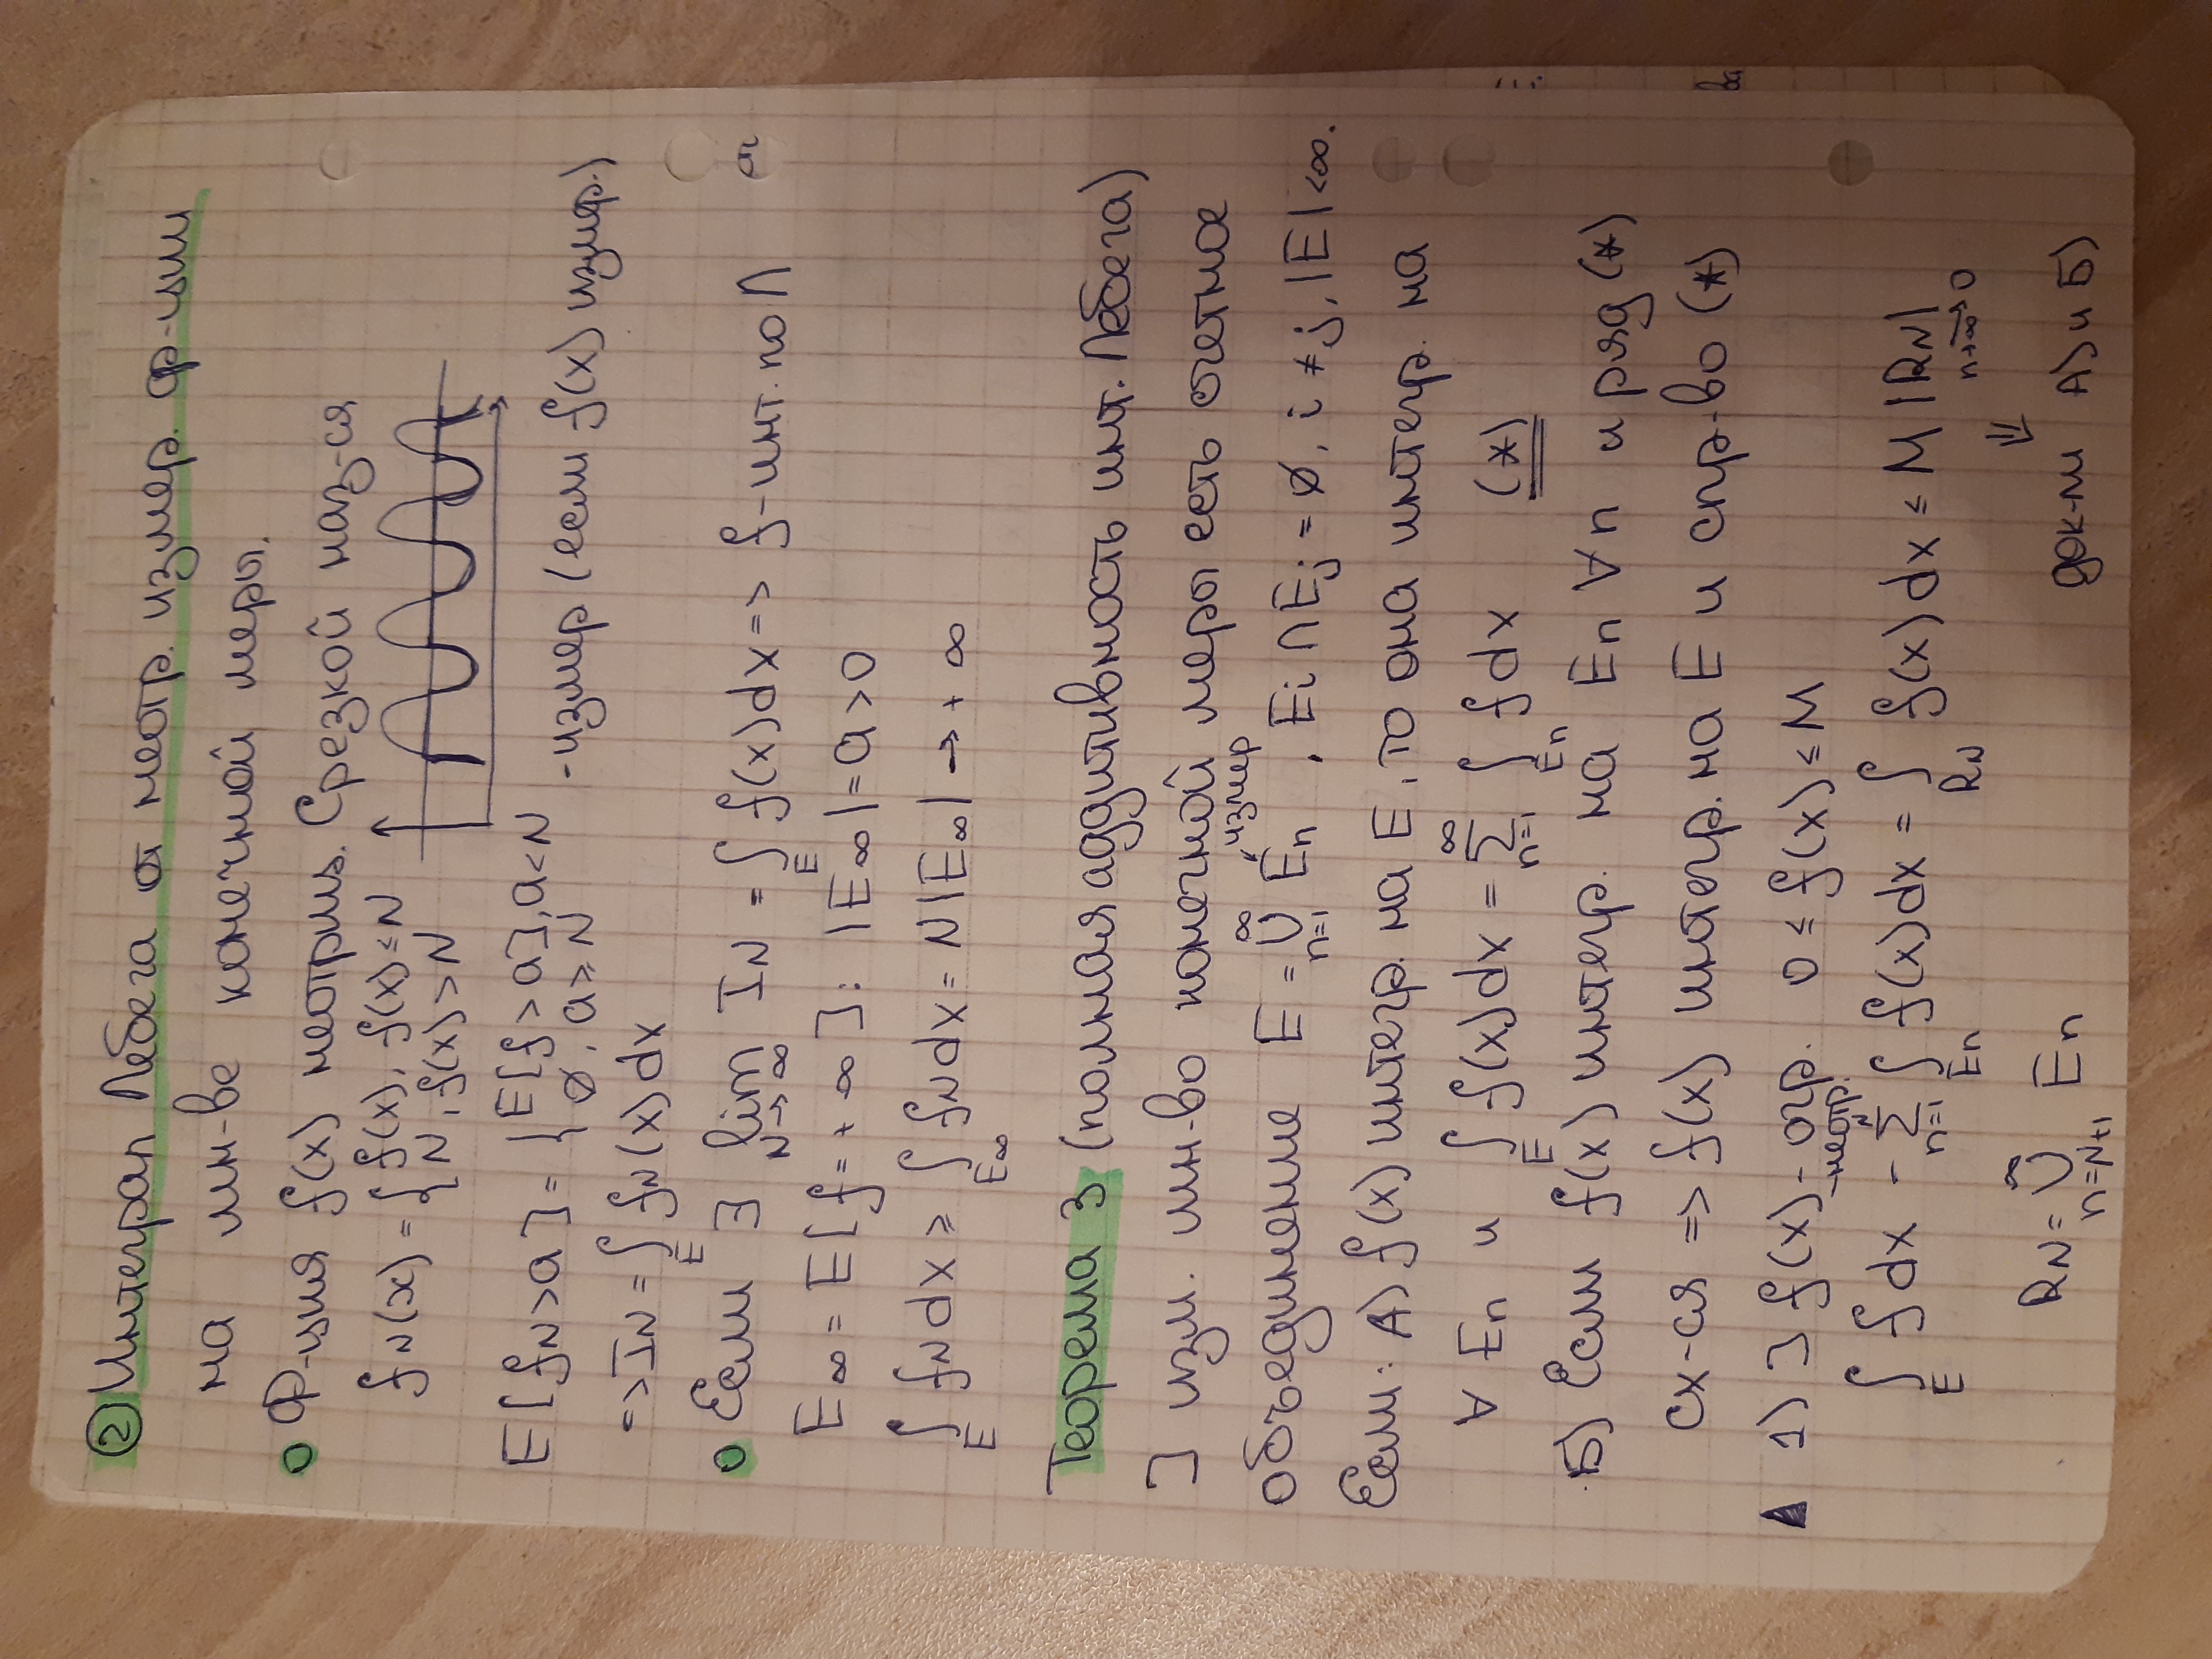 ② Интеграл Лебега от неотр. измер. ф-ции
на мн-ве конечной меры.
0 Ф-ция f(x) неотриц. Срезкой наз-ся
f_N(x) = { f(x), f(x) ≤ N
N, f(x) > N
E[f_N > a] = { E[f > a], a < N
∅, a ≥ N
- измер (если f(x) измер.)
=> I_N = ∫_E f_N(x) dx
0 Если ∃ lim_{N→∞} I_N = ∫_E f(x) dx => f - инт. по Л
E_∞ = E[f = +∞]: |E_∞| = a > 0
∫_E f_N dx ≥ ∫_{E_∞} f_N dx = N|E_∞| → +∞
Теорема 3 (полная аддитивность инт. Лебега)
] изм. мн-во конечной меры есть счетное
объединение E = ∪_{n=1}^∞ E_n - измер, E_i ∩ E_j = ∅, i ≠ j, |E| < ∞.
Если: А) f(x) интегр. на E, то она интегр. на
∀ E_n и ∫_E f(x) dx = Σ_{n=1}^∞ ∫_{E_n} f dx (*)
Б) Если f(x) интегр. на E_n ∀ n и ряд (*)
сх-ся => f(x) интегр. на E и спр-во (*)
▲ 1) ] f(x) - огр. 0 ≤ f(x) ≤ M
- неотр.
∫_E f dx - Σ_{n=1}^N ∫_{E_n} f(x) dx = ∫_{R_N} f(x) dx ≤ M |R_N| →_{n→∞} 0
⇓
R_N = ∪_{n=N+1}^∞ E_n док-ли А) и Б)